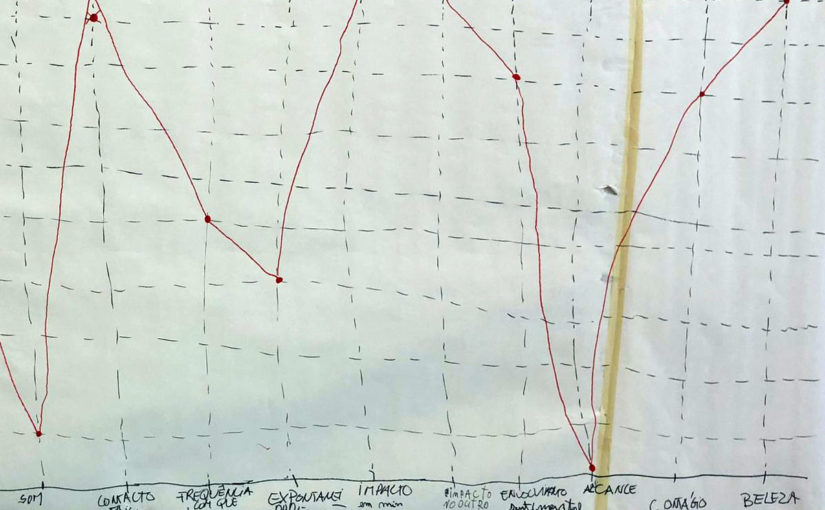 SOM
CONTACTO
FREQUÊNCIA
COM QUE
EXPONTANEI
IMPACTO
em mim
IMPACTO
NO OUTRO
ALCANCE
CONTÁGIO
BELEZA